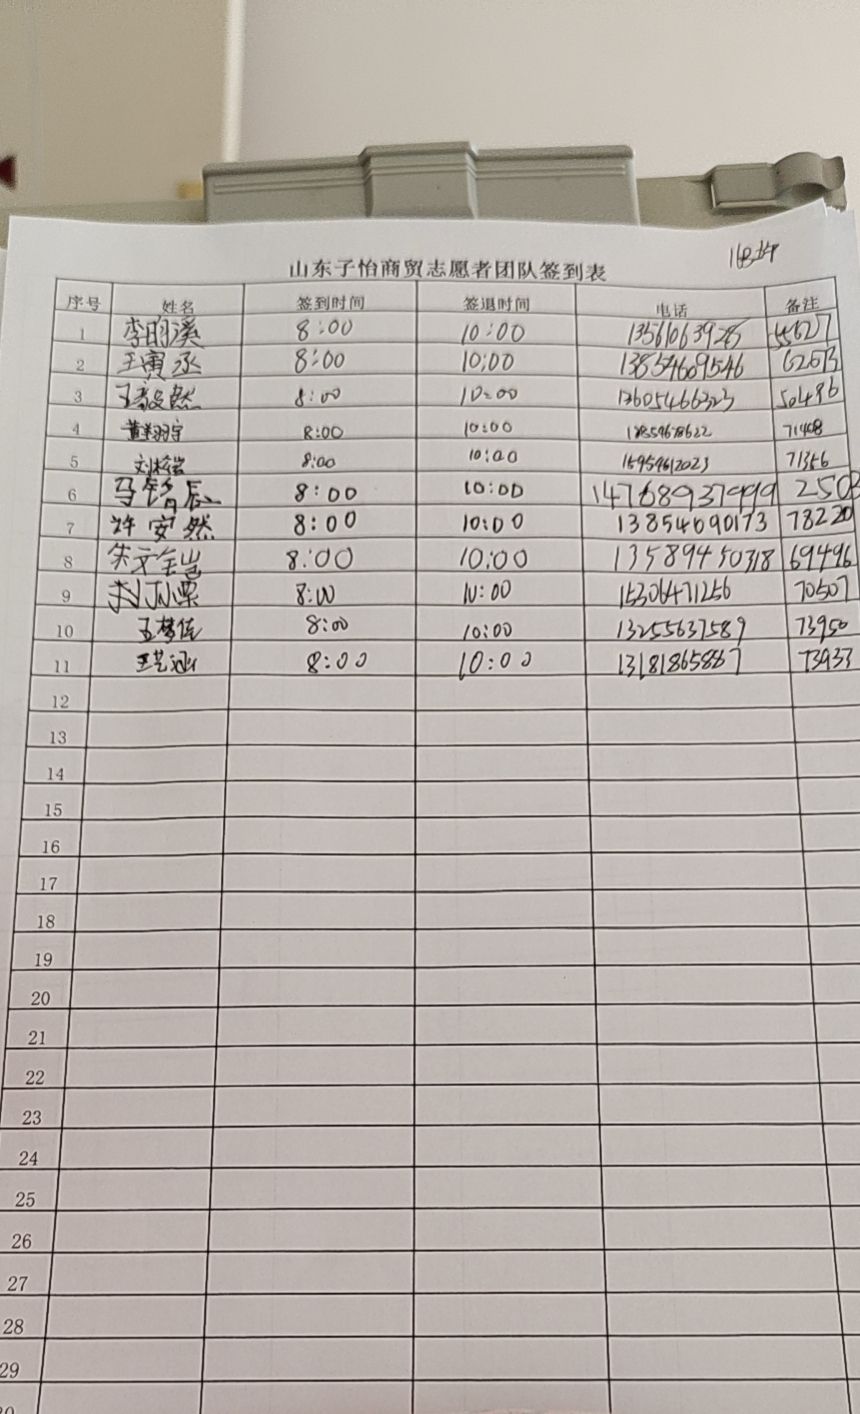 山东子怡商贸志愿者团队签到表
序号 姓名 签到时间 签退时间 电话 备注
1 李昀溪 8:00 10:00 13561063925 55627
2 王寅丞 8:00 10:00 13854609546
3 8:00 10:00 13605466323 50486
4 黄翔宇 8:00 10:00 71408
5 8:00 10:00 15954612023 71356
6 8:00 10:00 14768937999
7 许安然 8:00 10:00 13854690173 78220
8 8:00 10:00 13589450318 69496
9 8:00 10:00 15306471256 70507
10 8:00 10:00 13255637589 73950
11 王艺涵 8:00 10:00 13181865867 73933
12
13
14
15
16
17
18
19
20
21
22
23
24
25
26
27
28
29